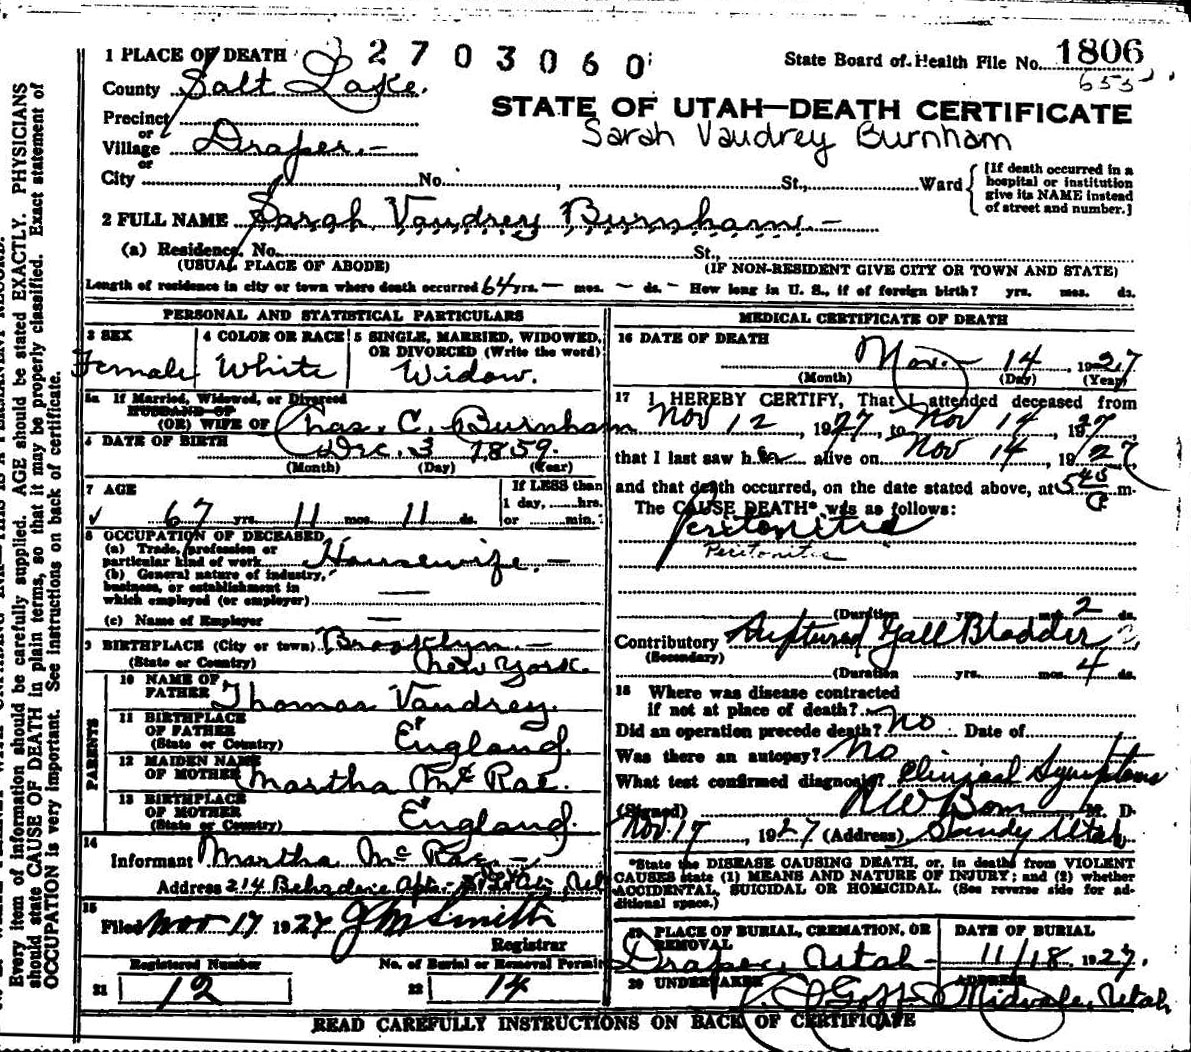 1 PLACE OF DEATH 2703060 State Board of Health File No. 1806
County Salt Lake. 655
STATE OF UTAH—DEATH CERTIFICATE
Precinct
or
Village Draper.—
Sarah Vaudrey Burnham
or
City No. , St., Ward
[If death occurred in a
hospital or institution
give its NAME instead
of street and number.]
2 FULL NAME Sarah Vaudrey Burnham —
(a) Residence. No. St.,
(USUAL PLACE OF ABODE) (IF NON-RESIDENT GIVE CITY OR TOWN AND STATE)
Length of residence in city or town where death occurred 64 yrs. — mos. — ds. — How long in U. S., if of foreign birth? yrs. mos. ds.
PERSONAL AND STATISTICAL PARTICULARS
3 SEX
Female
4 COLOR OR RACE
White
5 SINGLE, MARRIED, WIDOWED,
OR DIVORCED (Write the word)
Widow.
5a If Married, Widowed, or Divorced
HUSBAND OF
(OR) WIFE OF Chas. C. Burnham
6 DATE OF BIRTH Dec. 3 1859.
(Month) (Day) (Year)
7 AGE
67 yrs. 11 mos. 11 ds.
If LESS than
1 day, hrs.
or min.
8 OCCUPATION OF DECEASED
(a) Trade, profession or
particular kind of work Housewife. —
(b) General nature of industry,
business, or establishment in
which employed (or employer) —
(c) Name of Employer —
9 BIRTHPLACE (City or town) Brooklyn —
(State or Country) New York.
PARENTS
10 NAME OF
FATHER Thomas Vaudrey.
11 BIRTHPLACE
OF FATHER
(State or Country) England.
12 MAIDEN NAME
OF MOTHER Martha McRae.
13 BIRTHPLACE
OF MOTHER
(State or Country) England.
14
Informant Martha McRae —
Address 214 Apts.
15
Filed Nov 17 1927 J M Smith
Registrar
Registered Number No. of Burial or Removal Permit
21 12 22 14
MEDICAL CERTIFICATE OF DEATH
16 DATE OF DEATH
Nov. — 14, 1927
(Month) (Day) (Year)
17 I HEREBY CERTIFY, That I attended deceased from
Nov 12, 1927, to Nov 14, 1927
that I last saw her alive on Nov 14, 1927
and that death occurred, on the date stated above, at 5 45 P. m.
The CAUSE DEATH* was as follows:
Peritonitis
Peritonitis
(Duration yrs. mos. 2 ds.
Contributory Ruptured Gall Bladder
(Secondary)
(Duration yrs. mos. 4 ds.
18 Where was disease contracted
if not at place of death?
Did an operation precede death? No Date of
Was there an autopsy? No
What test confirmed diagnosis? Clinical Symptoms
(Signed) M. D.
Nov 17, 1927 (Address) Sandy Utah
*State the DISEASE CAUSING DEATH, or, in deaths from VIOLENT
CAUSES state (1) MEANS AND NATURE OF INJURY; and (2) whether
ACCIDENTAL, SUICIDAL OR HOMICIDAL. (See reverse side for ad-
ditional space.)
19 PLACE OF BURIAL, CREMATION, OR
REMOVAL
Draper, Utah —
DATE OF BURIAL
11/18, 1927.
20 UNDERTAKER
ADDRESS
Midvale, Utah
READ CAREFULLY INSTRUCTIONS ON BACK OF CERTIFICATE
Every item of information should be carefully supplied. AGE should be stated EXACTLY. PHYSICIANS
should state CAUSE OF DEATH in plain terms, so that it may be properly classified. Exact statement of
OCCUPATION is very important. See instructions on back of certificate.